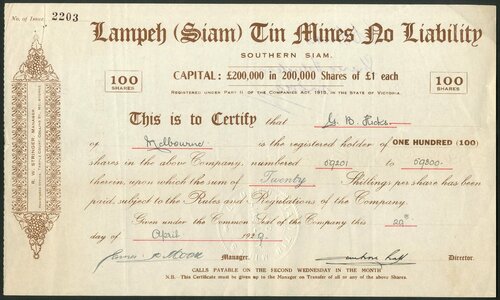 No. of Issue 2203
Lampeh (Siam) Tin Mines No Liability
SOUTHERN SIAM.
CAPITAL: £200,000 in 200,000 Shares of £1 each
REGISTERED UNDER PART II OF THE COMPANIES ACT, 1915, IN THE STATE OF VICTORIA.
100 SHARES
100 SHARES
This is to Certify that G. B. Hicks
of Melbourne is the registered holder of ONE HUNDRED (100)
shares in the above Company, numbered 59201 to 59300
therein, upon which the sum of Twenty Shillings per share has been
paid, subject to the Rules and Regulations of the Company.
Given under the Common Seal of the Company this
day of April 1929
Manager.
Director.
CALLS PAYABLE ON THE SECOND WEDNESDAY IN THE MONTH
N.B. This Certificate must be given up to the Manager on Transfer of all or any of the above Shares.
R. W. STRINGER, MANAGER